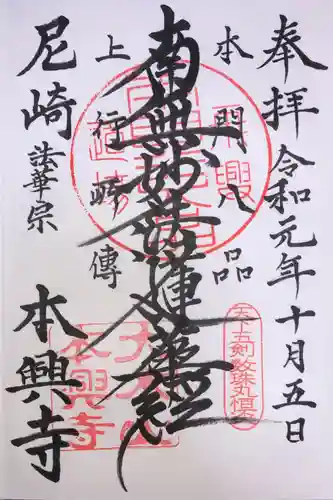 奉拝 令和元年十月五日
本門八品
南無妙法蓮華経
上行所傳
尼崎 法華宗
本興寺
本興寺